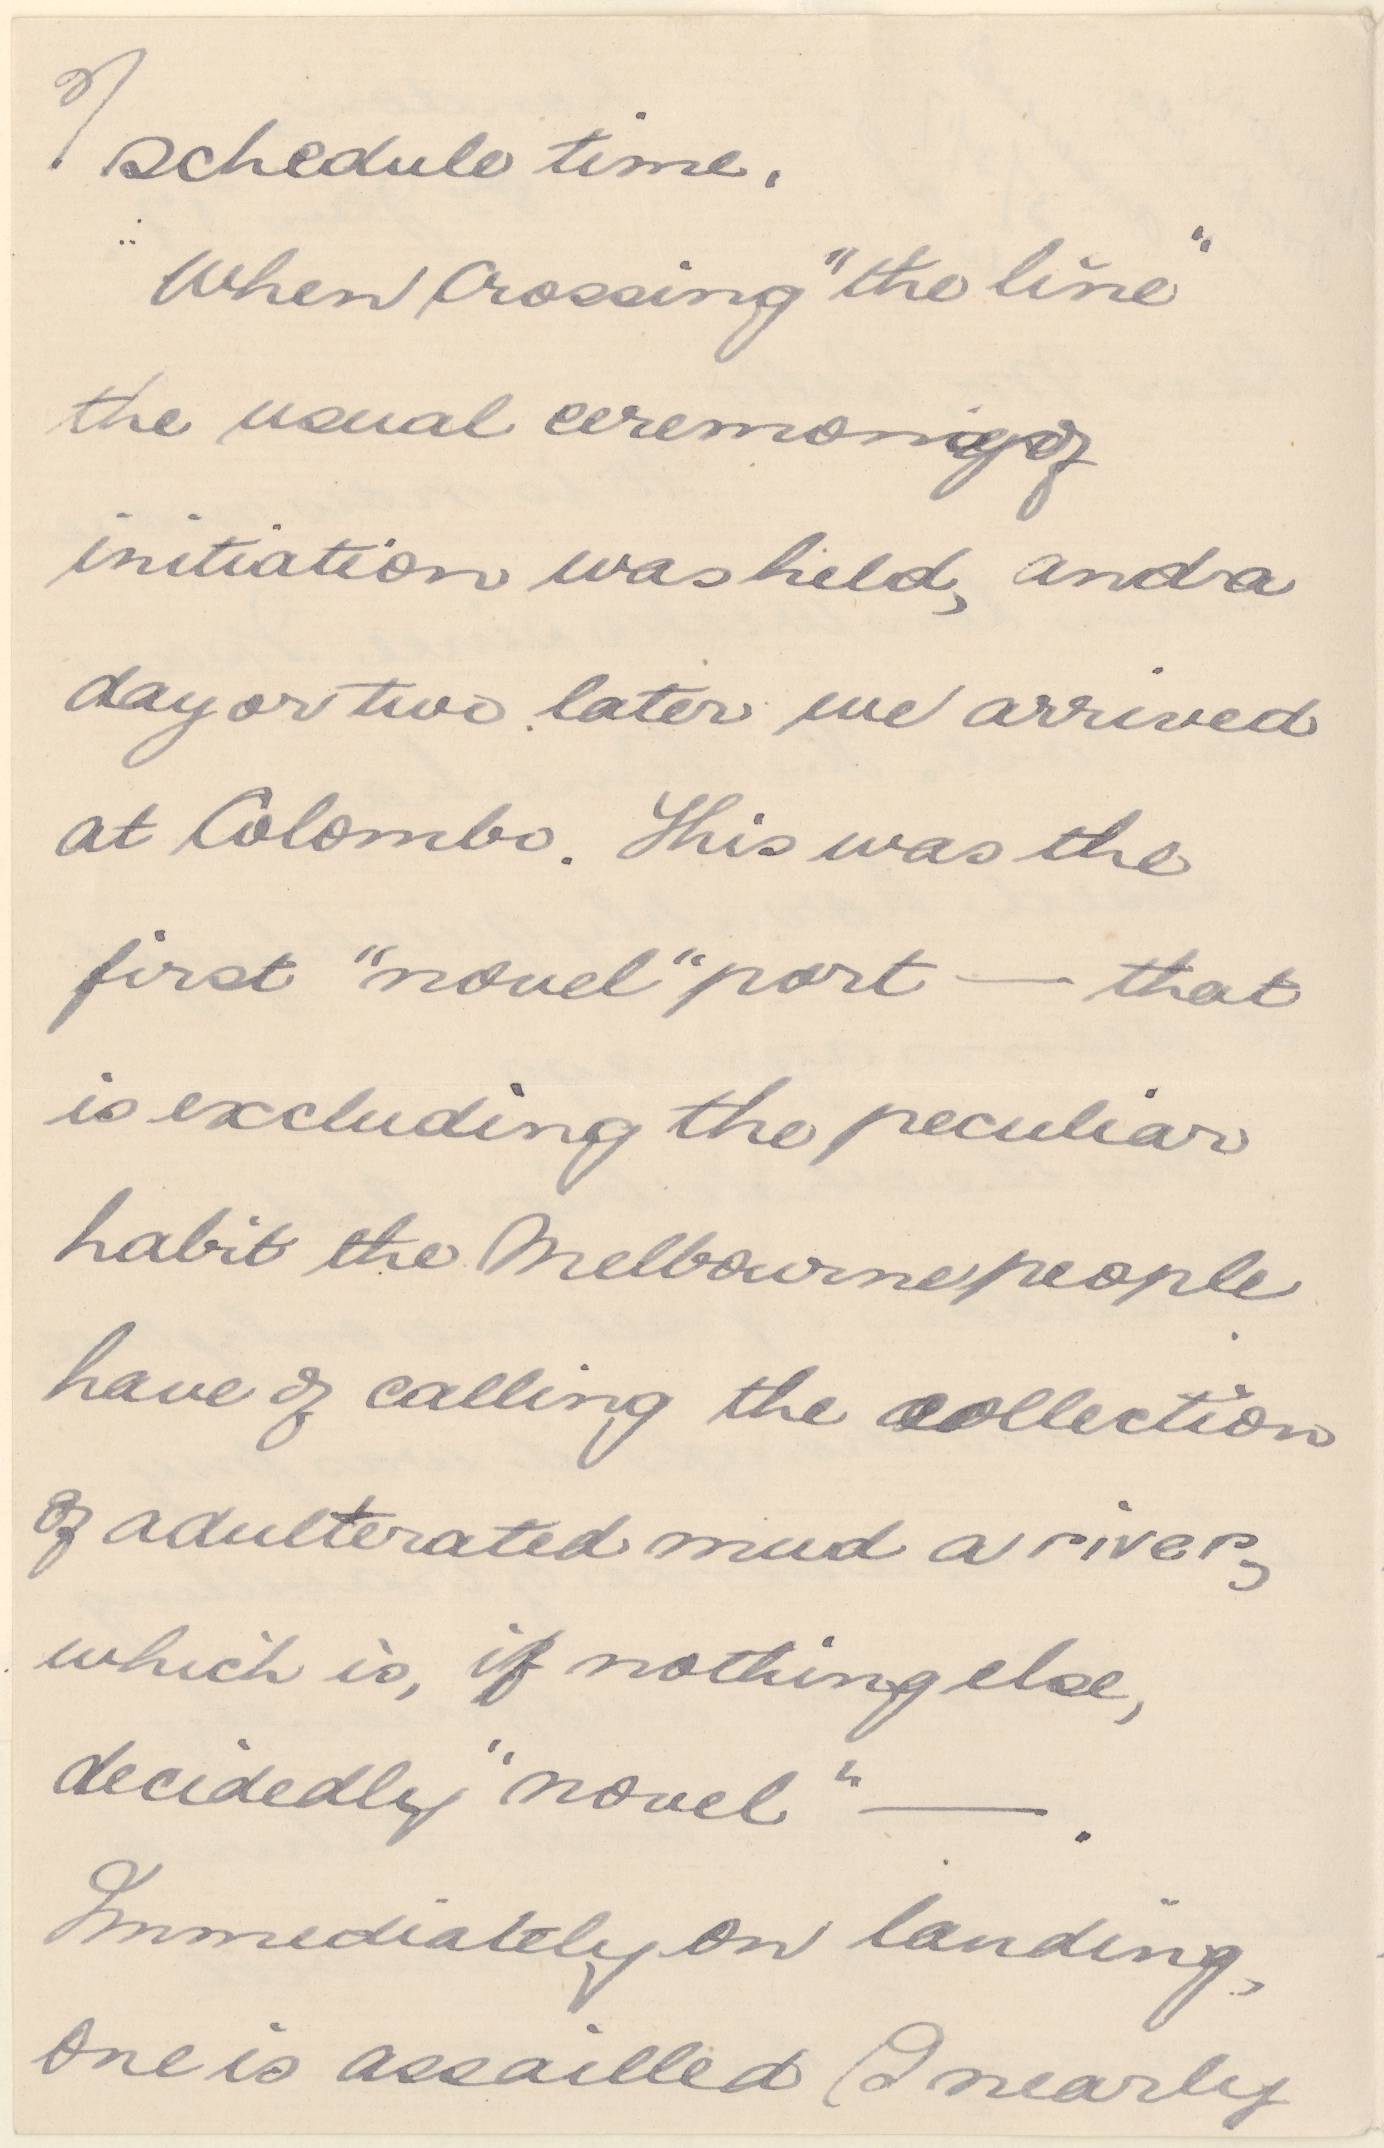 schedule time.
When Crossing "the line"
the usual ceremony of
initiation was held, and a
day or two later we arrived
at Colombo. This was the
first "novel" port — that
is excluding the peculiar
habit the Melbourne people
have of calling the collection
of adulterated mud a river,
which is, if nothing else,
decidedly "novel" — .
Immediately on landing,
one is assailled (I nearly